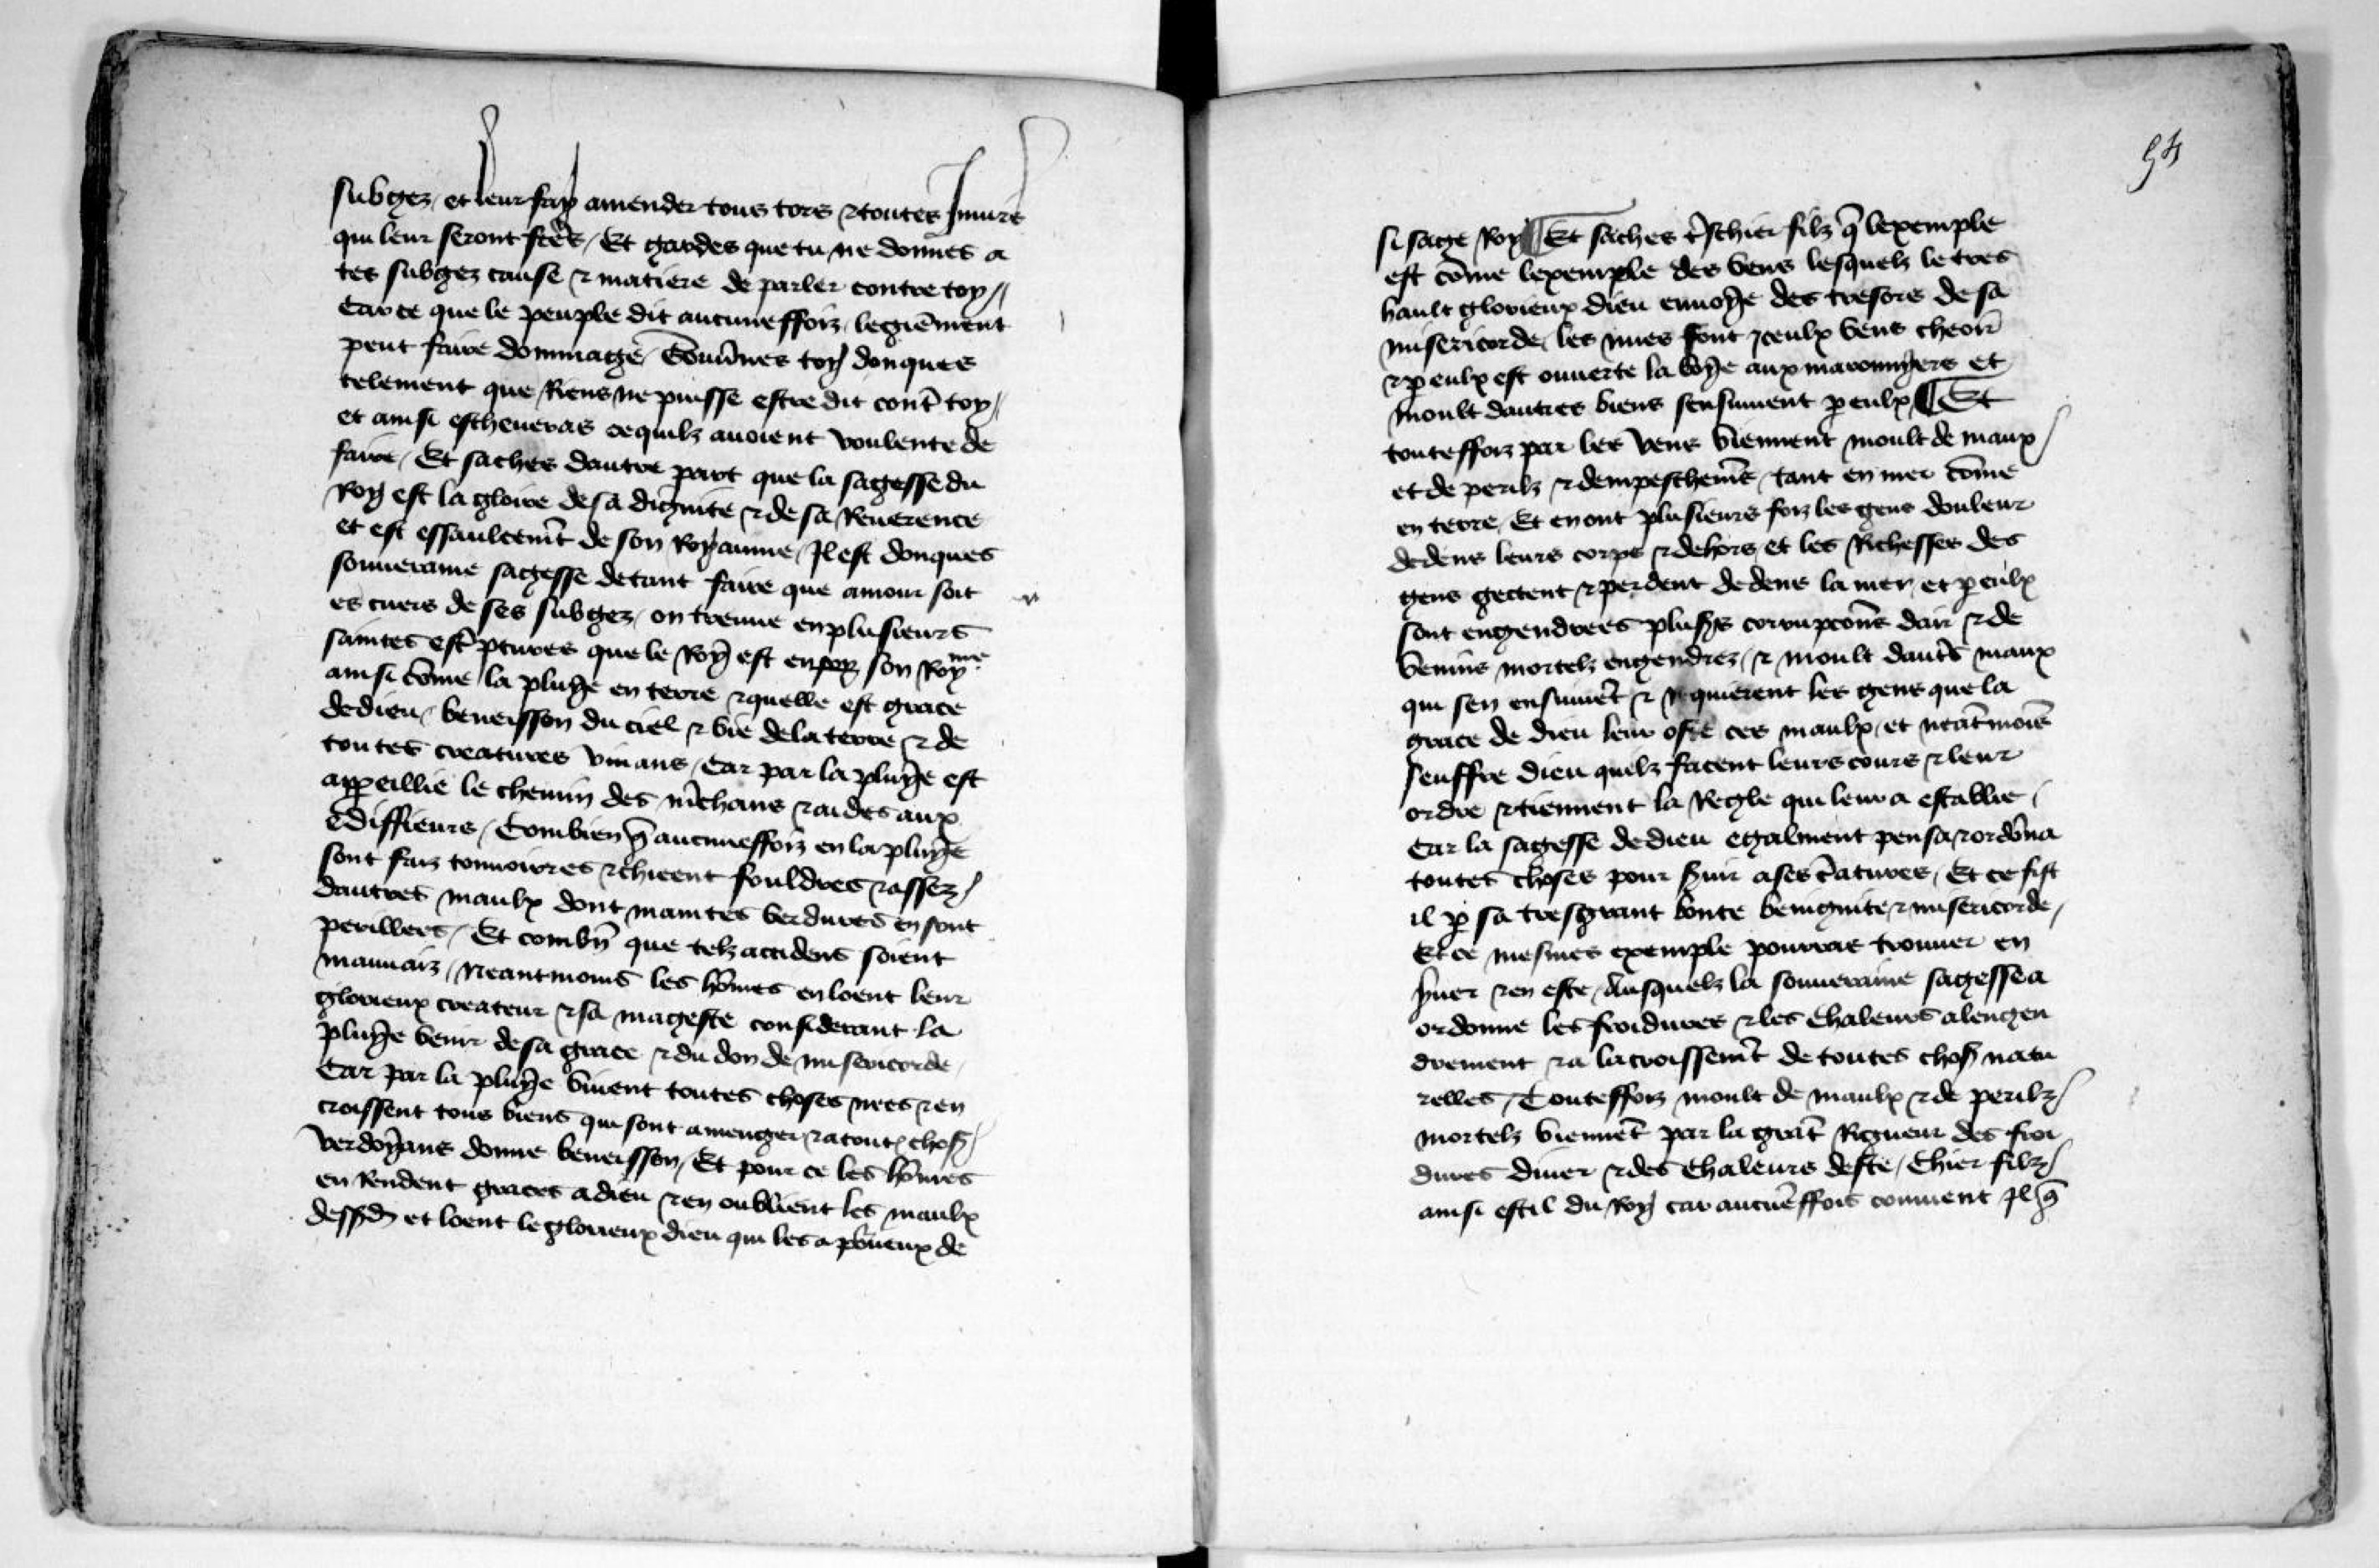 subgez et leur fay amender tous tors & toutes Iniures
qui leur seront fc̃es / Et gardes que tu ne donnes a
tes subgez cause & matiere de parler contre toy //
Car ce que le peuple dit aucuneffoiz legiẽment
peut faire dommage Gouũnes toy donques
telement que Riens ne puisse estre dit cont̃ toy //
et ainsi escheueras ce quilz auoient voulente de
faire / Et saches dautre part que la sagesse du
Roy est la gloire de sa dignite & de sa Reuerence
et est essaulcem̃t de son Royaume / Il est donques
souueraine sagesse de tant faire que amour soit
es cuers de ses subgez / on treuue en plusieurs
saintes esc̃ptures que le Roy est en son Roymẽ
ainsi cõme la pluye en terre & quelle est grace
de dieu / beneisson du ciel & vie de la terre & de
toutes creatures viuans / Car par la pluye est
appeillie le chemin des m̃chans & aides aux
ediffieurs / Combien q̃ aucuneffoiz en la pluye
sont faiz tonnoirres & chieent fouldres & assez /
dautres maulx dont maintes verdures en sont
perillees / Et combñ que telz accidens soient
mauuaiz / Neantmoins les hõmes en loent leur
glorieux createur & sa mageste considerant la
pluye venir de sa grace & du don de misericorde /
Car par la pluye viuent toutes choses nees & en
croissent tous biens qui sont a menger & a toutes chos̃ /
verdoyans donne beneisson / Et pour ce les hõmes
en Rendent graces a dieu & en oublient les maulx
dessusd et loent le glorieux dieu qui les a pourueux de
54
si sage Roy ¶ Et saches tr̃schier filz q̃ lexemple
est cõme lexemple des vens lesquelz le tres
hault glorieux dieu enuoye des tresors de sa
misericorde / les nues font yceulx vens cheoir
& p eulx est ouuerte la voye aux maronnyers et
moult dautres biens sensuiuent p eulx ¶ Et
touteffoiz par les vens viennent moult de maux /
et de perilz & dempeschem̃s / tant en mer cõme
en terre / Et en ont plusieurs foiz les gens douleur
dedens leurs corps & dehors et les Richesses des
gens gectent & perdent dedens la mer / et p eulx
sont engendrees plus̃rs corrupcõns dair & de
venins mortelz engendrez / & moult daut̃s maux
qui sen ensuiuẽt & requierent les gens que la
grace de dieu leur oste ces maulx / et neãtmoĩs
seuffre dieu quilz facent leurs cours & leur
ordre & tiennent la Regle qui leur a establie /
Car la sagesse de dieu egalment pensa & ordõna
toutes choses pour s̃uir a ses c̃atures / Et ce fist
il p sa tresgrant bonte benignite & misericorde /
Et ce mesmes exemple pourras trouuer en
yuer & en este / Ausquelz la souueraine sagesse a
ordonne les froidures & les chaleurs a lengen
drement & a lacroissem̃t de toutes chos̃ natu
relles / Touteffoiz moult de maulx & de perilz /
mortelz viennẽt par la grãt Rigueur des froi
dures diuer & des chaleurs deste / Chier filz /
ainsi est il du Roy car aucuẽffois conuient Il q̃